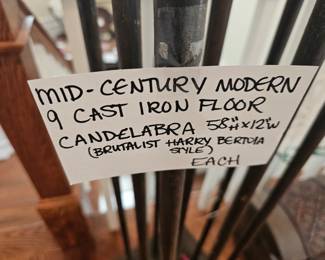 MID-CENTURY MODERN
9 CAST IRON FLOOR
CANDELABRA 58"H x 12"W
(BRUTALIST HARRY BERTOIA
STYLE)
EACH